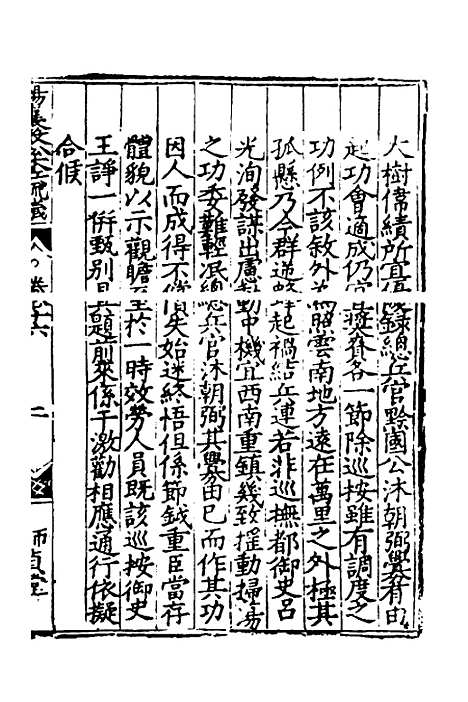 大樹偉績所宜優錄總兵官黔國公沐朝弼釁有由
起功會適成仍宜獎賚各一節除巡按雖有調度之
功例不該敘外為照雲南地方遠在萬里之外極其
孤懸乃今群逆蜂起禍結兵連若非巡撫都御史呂
光洵發謀出慮動中機宜西南重鎮幾致搖動掃蕩
之功委難輕泯總兵官沐朝弼其釁由巳而作其功
因人而成得不償失始迷終悟但係節鉞重臣當存
體貌以示觀瞻至於一時效勞人員既該巡按御史
王諍一併甄別具題前來係干激勸相應通行依擬
合候
二
師貞堂